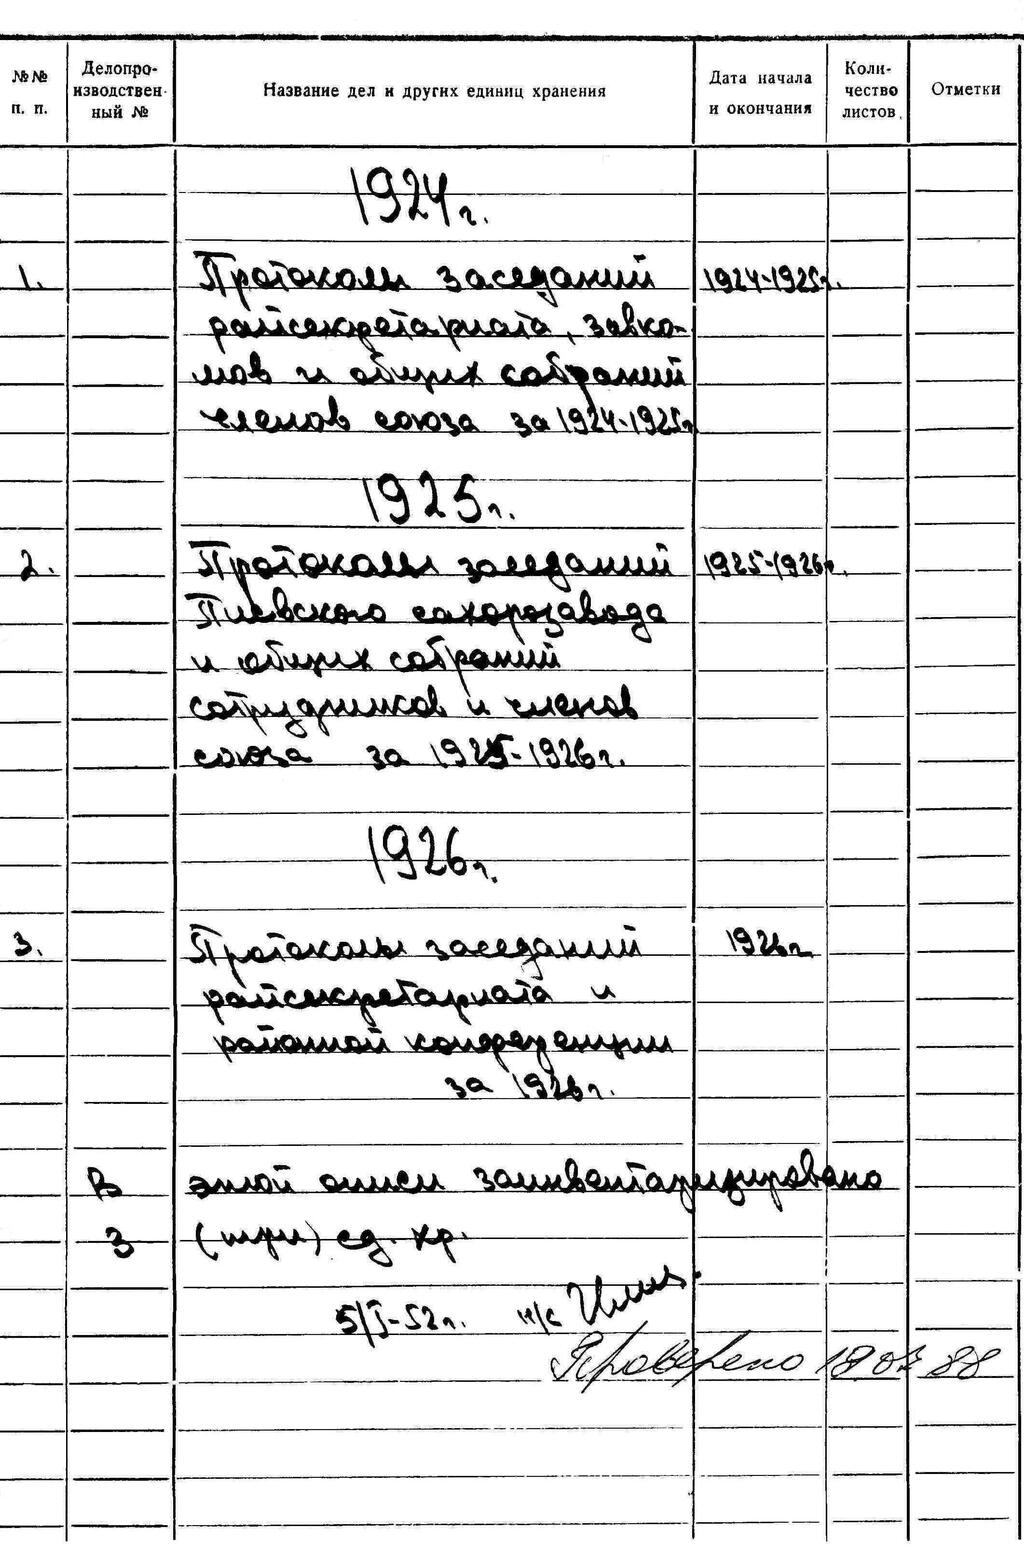 №№ п. п.
Делопро-
изводствен-
ный №
Название дел и других единиц хранения
Дата начала
и окончания
Коли-
чество
листов
Отметки
1924г.
1. Протоколы заседаний 1924-1925г.
райсекретариата, завко-
мов и общих собраний
членов союза за 1924-1925г
1925г.
2. Протоколы заседаний 1925-1926г.
сахарозавода
и общих собраний
сотрудников и членов
союза за 1925-1926г.
1926г.
3. Протоколы заседаний 1926г
райсекретариата и
районной конференции
за 1926г.
В этой описи заинвентаризировано
3 (три) ед. хр.
5/I-52г. н/с
Проверено 18 88